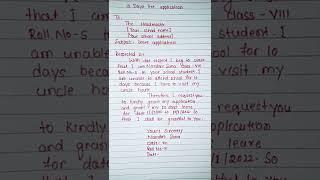 10 Days leave application
To
The Headmaster
[Your school name]
[Your school address]
Subject: Leave application
Respected Sir
With due respect I beg to state
that I am Nandini Jana Class-VIII
Roll No-5 in your school student. I
am unable to attend school for 10
days because I have to visit my
uncle house.
Therefore, I request you
to kindly grant my application
and grant me 10 days leave
for date
that I shall be grateful to you.
Yours Sincerely
Nandini Jana
Class- VIII
Roll No-5
Date-
that I am
Class-VIII
Roll No-5
student. I
am unable
ool for 10
days beca
visit my
uncle hous
quest you
to kindly
ication
and gran
leave
for date
1/2022. So